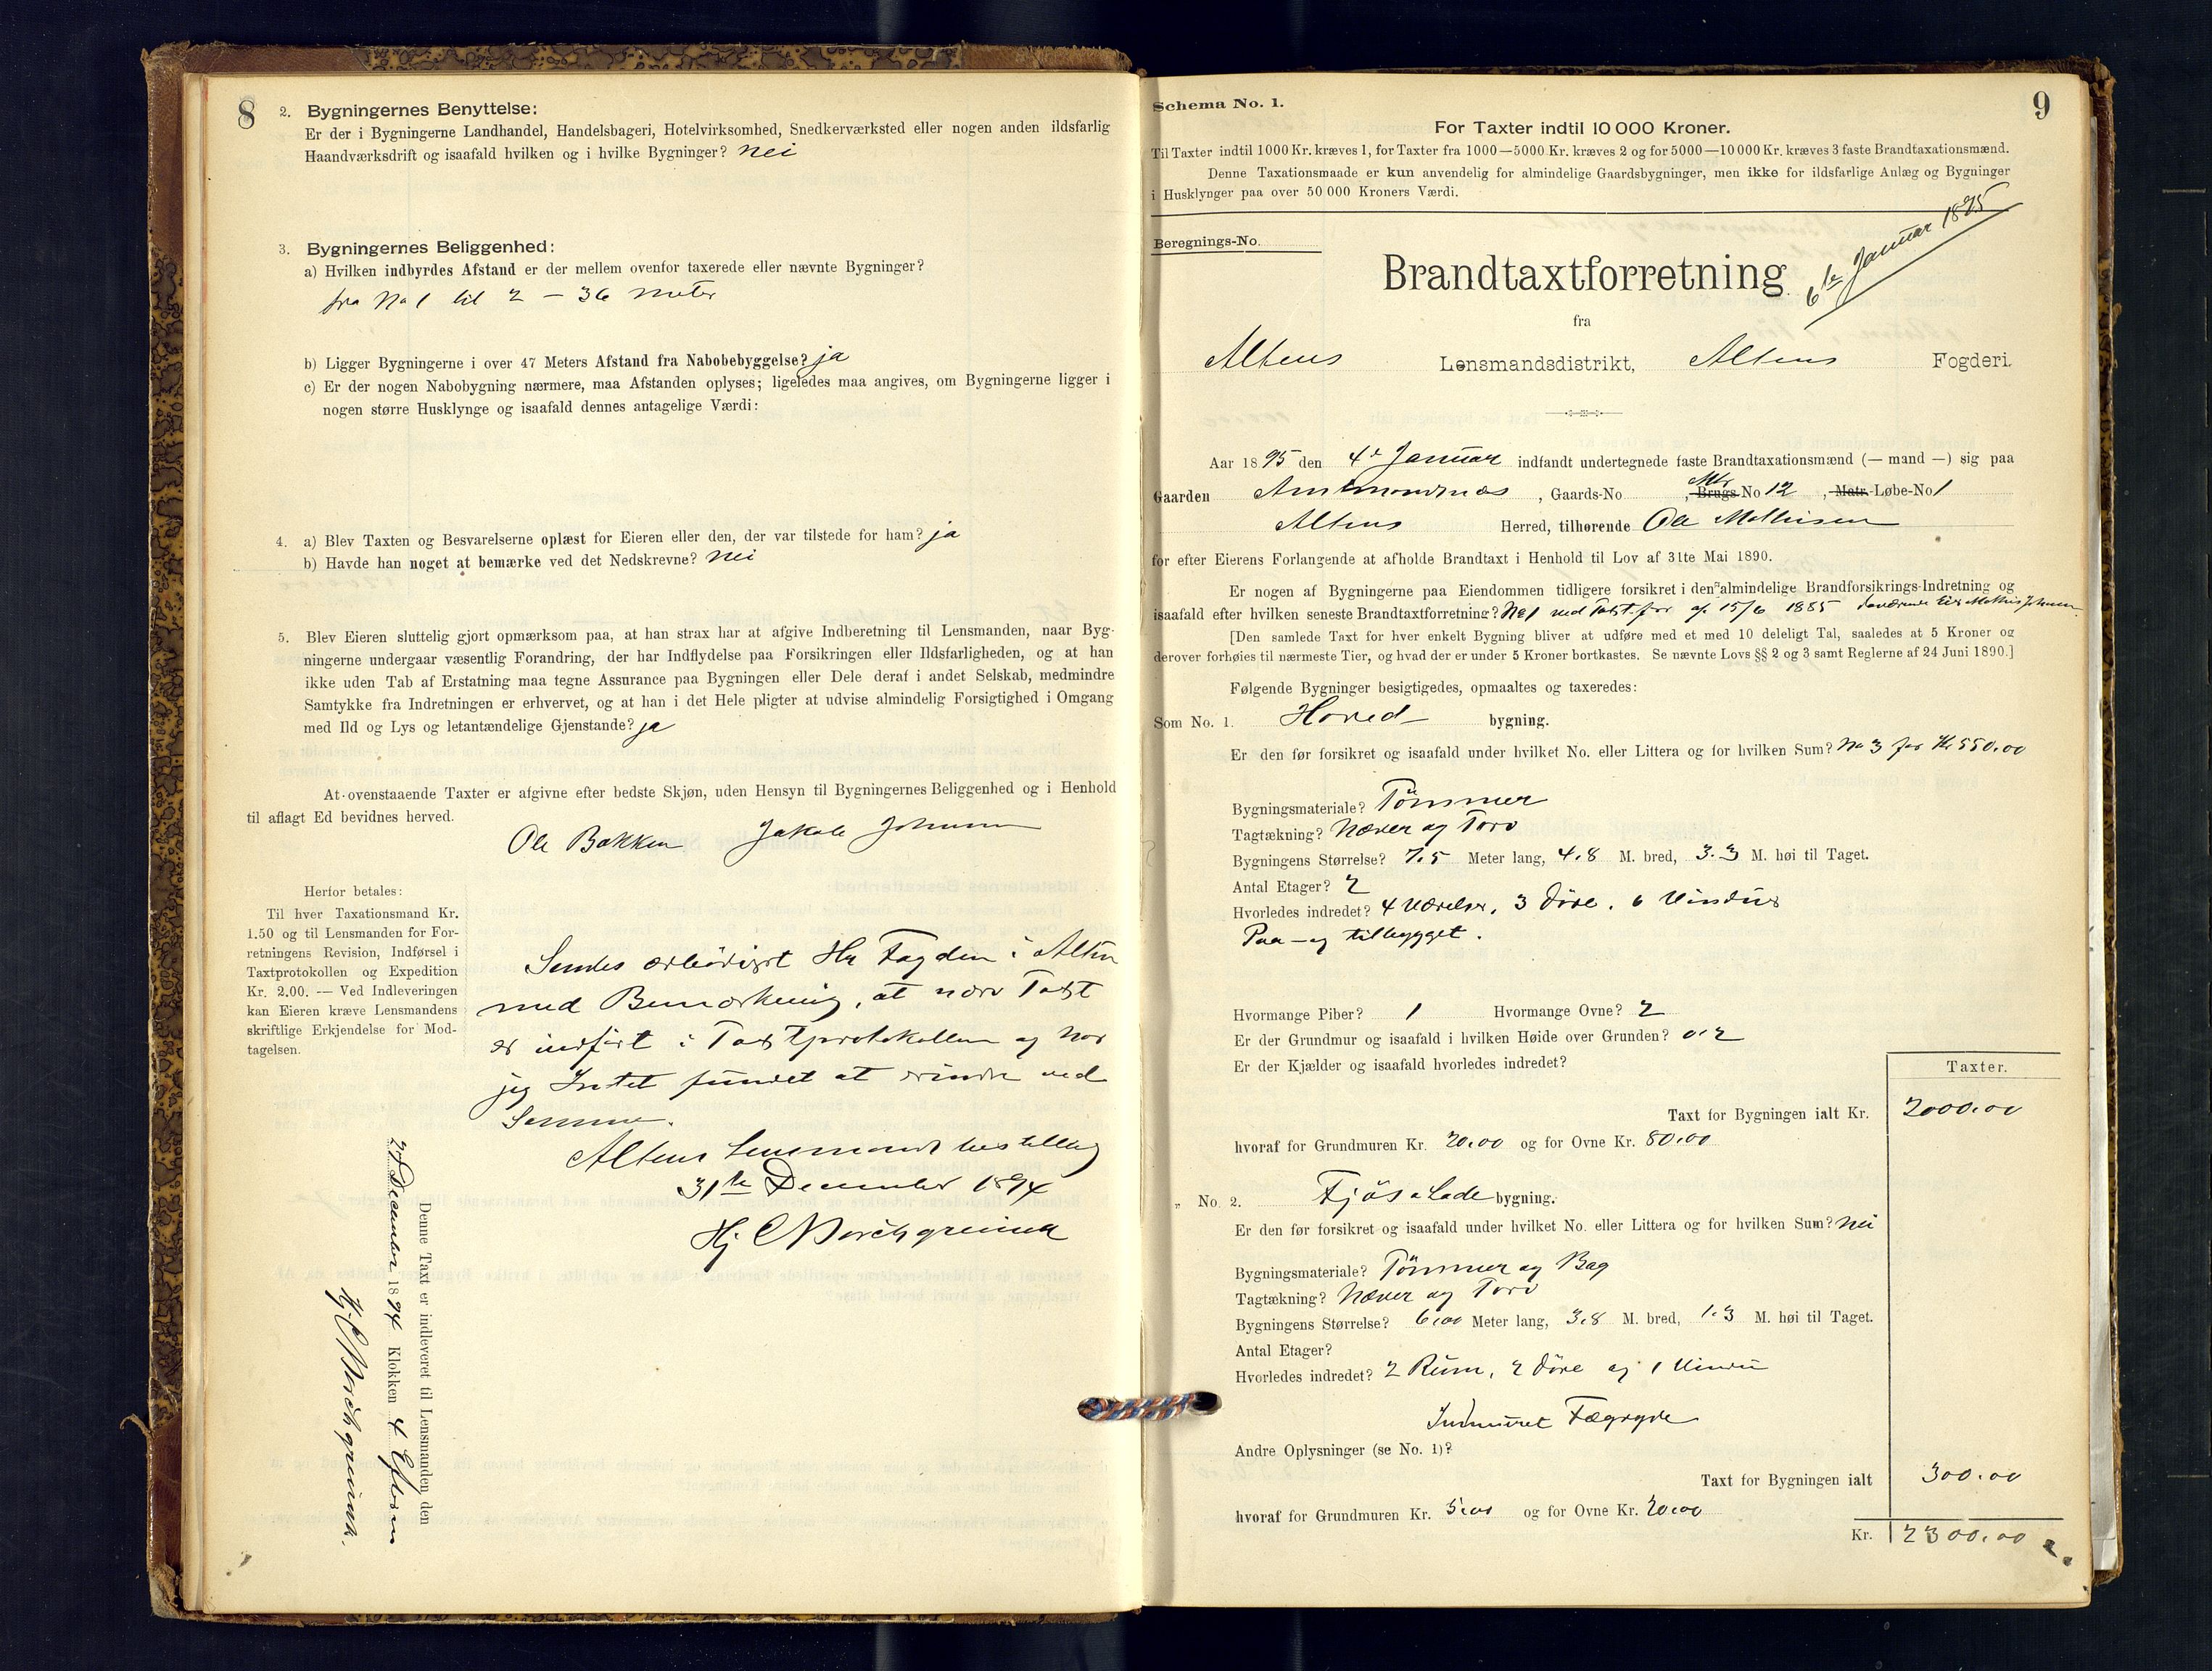 8
2. Bygningernes Benyttelse:
Er der i Bygningerne Landhandel, Handelsbageri, Hotelvirksomhed, Snedkerværksted eller nogen anden ildsfarlig
Haandværksdrift og isaafald hvilken og i hvilke Bygninger? nei
3. Bygningernes Beliggenhed:
a) Hvilken indbyrdes Afstand er der mellem ovenfor taxerede eller nævnte Bygninger?
fra No 1 til 2 — 36 meter
b) Ligger Bygningerne i over 47 Meters Afstand fra Nabobebyggelse? ja
c) Er der nogen Nabobygning nærmere, maa Afstanden oplyses; ligeledes maa angives, om Bygningerne ligger i
nogen større Husklynge og isaafald dennes antagelige Værdi:
4. a) Blev Taxten og Besvarelserne oplæst for Eieren eller den, der var tilstede for ham? ja
b) Havde han noget at bemærke ved det Nedskrevne? nei
5. Blev Eieren sluttelig gjort opmærksom paa, at han strax har at afgive Indberetning til Lensmanden, naar Byg-
ningerne undergaar væsentlig Forandring, der har Indflydelse paa Forsikringen eller Ildsfarligheden, og at han
ikke uden Tab af Erstatning maa tegne Assurance paa Bygningen eller Dele deraf i andet Selskab, medmindre
Samtykke fra Indretningen er erhvervet, og at han i det Hele pligter at udvise almindelig Forsigtighed i Omgang
med Ild og Lys og letantændelige Gjenstande? ja
At ovenstaaende Taxter er afgivne efter bedste Skjøn, uden Hensyn til Bygningernes Beliggenhed og i Henhold
til aflagt Ed bevidnes herved.
Ole Bakken Jakob Johnsen
Herfor betales:
Til hver Taxationsmand Kr.
1.50 og til Lensmanden for For-
retningens Revision, Indførsel i
Taxtprotokollen og Expedition
Kr. 2.00. — Ved Indleveringen
kan Eieren kræve Lensmandens
skriftlige Erkjendelse for Mod-
tagelsen.
Sendes ærbødigst Hr Fogden i Alten
med Bemærkning, at nærv Taxt
er indført i Taxtprotokollen og har
jeg Intet fundet at erindre ved
Samme.
Altens Lensmandsbestilling
31te December 1894
Hj. C Borchgrevink
Denne Taxt er indleveret til Lensmanden den
December 1894 Klokken 4 Efterm
Hj. C Borchgrevink.
Schema No. 1.
9
For Taxter indtil 10 000 Kroner.
Til Taxter indtil 1000 Kr. kræves 1, for Taxter fra 1000—5000 Kr. kræves 2 og for 5000—10 000 Kr. kræves 3 faste Brandtaxationsmænd.
Denne Taxationsmaade er kun anvendelig for almindelige Gaardsbygninger, men ikke for ildsfarlige Anlæg og Bygninger
i Husklynger paa over 50 000 Kroners Værdi.
Beregnings-No.
Brandtaxtforretning
6te Januar 1895
fra
Altens Lensmandsdistrikt, Altens Fogderi.
Aar 1895 den 4de Januar indfandt undertegnede faste Brandtaxationsmænd (— mand —) sig paa
Gaarden Amtmandsnæs, Gaards-No , Brugs Mtr No 12, Matr.-Løbe-No 1
Altens Herred, tilhørende Ole Mathisen
for efter Eierens Forlangende at afholde Brandtaxt i Henhold til Lov af 31te Mai 1890.
Er nogen af Bygningerne paa Eiendommen tidligere forsikret i den almindelige Brandforsikrings-Indretning og
isaafald efter hvilken seneste Brandtaxtforretning? No 1 ved Taxt.for af 15/6 1885 daværende Eier Mathis Johnsen
[Den samlede Taxt for hver enkelt Bygning bliver at udføre med et med 10 deleligt Tal, saaledes at 5 Kroner og
derover forhøies til nærmeste Tier, og hvad der er under 5 Kroner bortkastes. Se nævnte Lovs §§ 2 og 3 samt Reglerne af 24 Juni 1890.]
Følgende Bygninger besigtigedes, opmaaltes og taxeredes:
Som No. 1. Hoved- bygning.
Er den før forsikret og isaafald under hvilket No. eller Littera og for hvilken Sum? No 3 for Kr 550.00
Bygningsmateriale? Tømmer
Tagtækning? Næver og Torv
Bygningens Størrelse? 7.5 Meter lang, 4.8 M. bred, 3.3 M. høi til Taget.
Antal Etager? 2
Hvorledes indredet? 4 Værelser, 3 Døre, 6 Vinduer
Paa- og tilbygget.
Hvormange Piber? 1 Hvormange Ovne? 2
Er der Grundmur og isaafald i hvilken Høide over Grunden? 0.2
Er der Kjælder og isaafald hvorledes indredet?
Taxter.
Taxt for Bygningen ialt Kr. 2000.00
hvoraf for Grundmuren Kr. 20.00 og for Ovne Kr. 80.00
" No. 2. Fjøs & Lade bygning.
Er den før forsikret og isaafald under hvilket No. eller Littera og for hvilken Sum? nei
Bygningsmateriale? Tømmer og Bag
Tagtækning? Næver og Torv
Bygningens Størrelse? 6.00 Meter lang, 3.8 M. bred, 1.3 M. høi til Taget.
Antal Etager?
Hvorledes indredet? 2 Rum, 2 Døre og 1 Vindu
Indmuret Fægryde
Andre Oplysninger (se No. 1)?
Taxt for Bygningen ialt 300.00
hvoraf for Grundmuren Kr. 5.00 og for Ovne Kr. 20.00
Kr. 2300.00